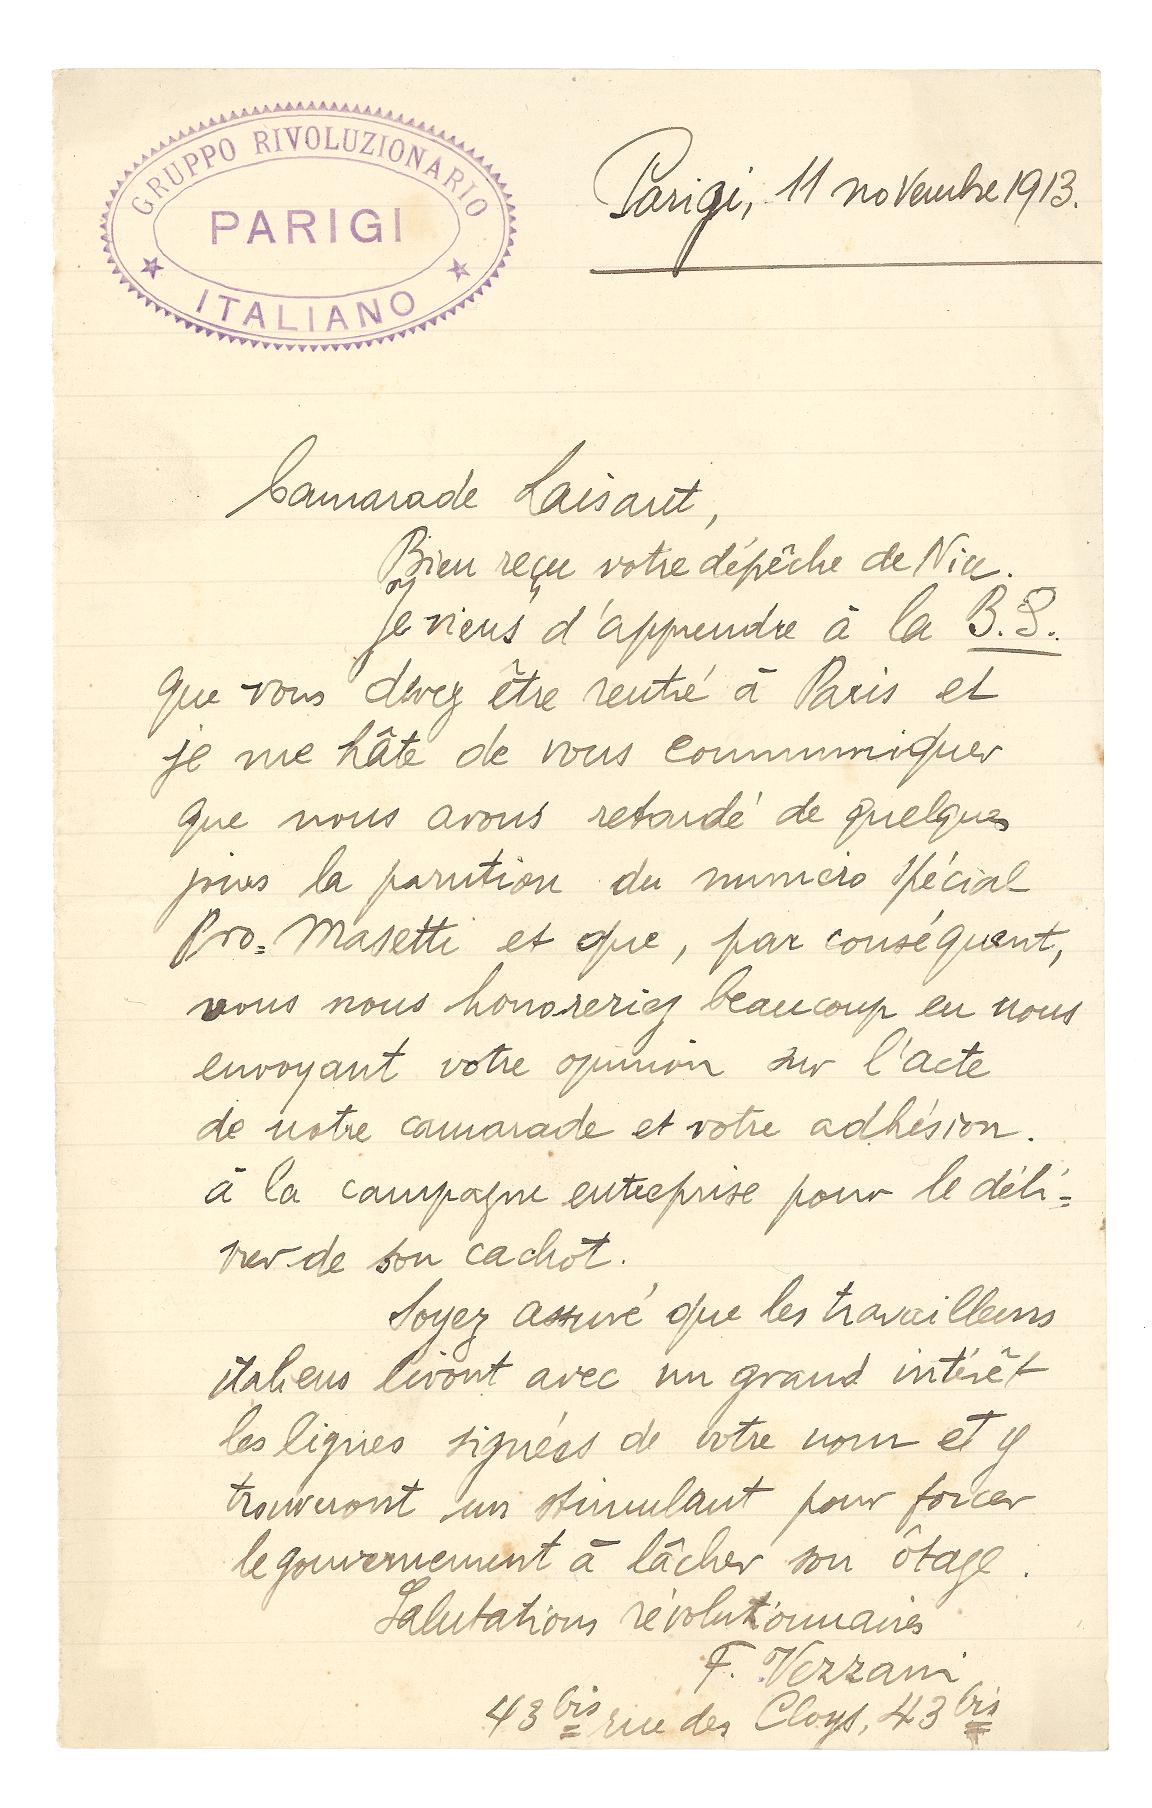 GRUPPO RIVOLUZIONARIO
PARIGI
ITALIANO
Parigi, 11 novembre 1913.
Camarade Laisant,
Bien reçu votre dépêche de Nice.
Je viens d'apprendre à la B.S.
que vous devez être rentré à Paris et
je me hâte de vous communiquer
que nous avons retardé de quelques
jours la parution du numéro spécial
Pro=Masetti et que, par conséquent,
vous nous honoreriez beaucoup en nous
envoyant votre opinion sur l'acte
de notre camarade et votre adhésion.
à la campagne entreprise pour le déli=
vrer de son cachot.
Soyez assuré que les travailleurs
italiens liront avec un grand intérêt
les lignes signées de votre nom et y
trouveront un stimulant pour forcer
le gouvernement à lâcher son ôtage.
Salutations révolutionnaires
F. Vezzani
43 bis rue des Cloys, 43 bis